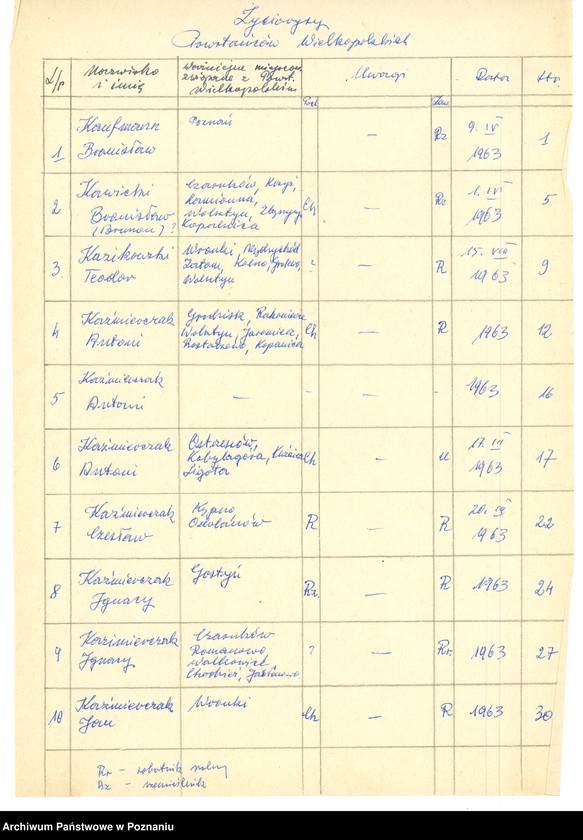 Życiorysy
Powstańców Wielkopolskich
L/p
Nazwisko i imię
Ważniejsze miejscow. związane z Powst. Wielkopolskim
Poch
Uwagi
Zaw
Data
Str.
1
Kaufmann
Bronisław
Poznań
—
Rz
9. IV
1963
1
2
Kawicki
Bronisław
(Brunon) ?
Czarnków,
Wolsztyn,
Kopanica
Ch
—
Rz
1. IV
1963
5
3.
Kazikowski
Teodor
Wronki, Międzychód
Zatom, Kolno,
Wolsztyn
?
—
R
15. VIII
1963
9
4
Kaźmierczak
Antoni
Grodzisk, Rakoniew
Wolsztyn, Jaromierz,
Rostarzewo, Kopanica
Ch
—
R
1963
12
5
Kaźmierczak
Antoni
—
-
—
-
1963
16
6
Kaźmierczak
Antoni
Ostrzeszów,
Kobylagóra,
Ligota
Ch
—
u
17. III
1963
17
7
Kaźmierczak
Czesław
Kępno
Odolanów
R
—
R
1963
22
8
Kaźmierczak
Ignacy
Gostyń
Rz
—
R
1963
24
9
Kaźmierczak
Ignacy
Czarnków
Romanowo
Walkowice
Chodzież,
?
—
Rr.
1963
27
10
Kaźmierczak
Jan
Wronki
Ch
—
R
1963
30
Rr – robotnik rolny
Rz – rzemieślnik
Archiwum Państwowe w Poznaniu